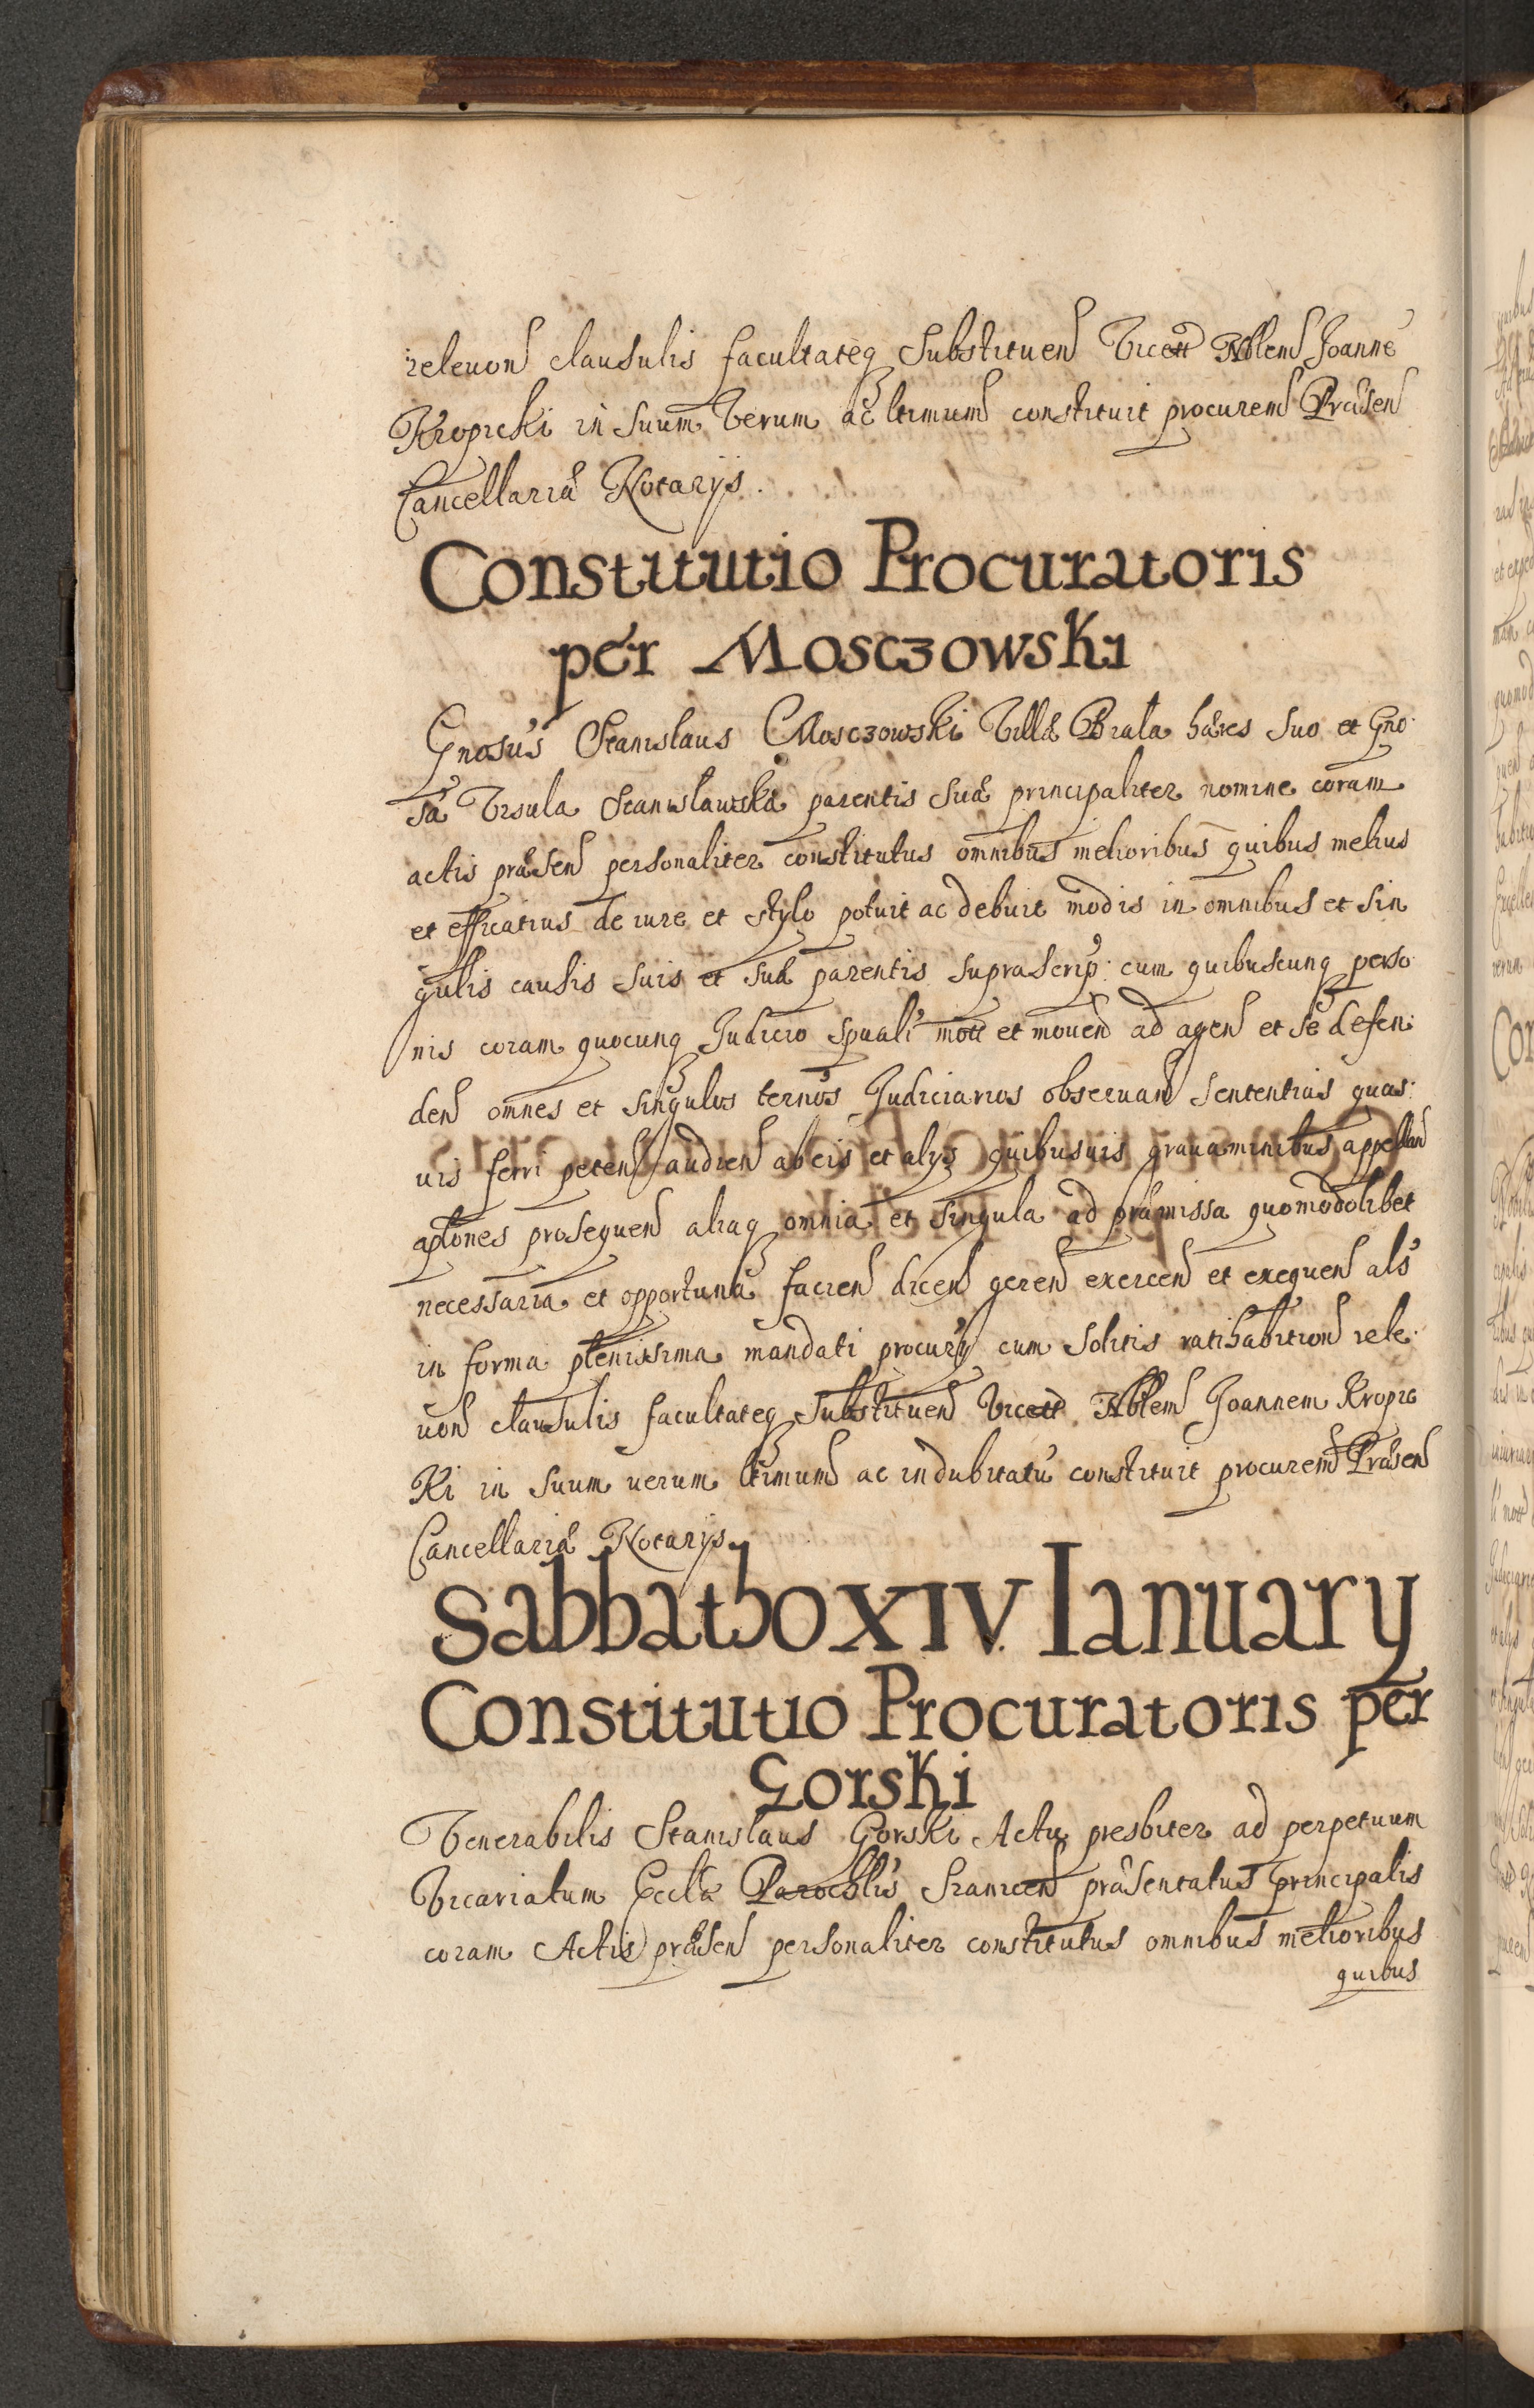 releuoń clausulis facultateq Substitueń Vicett Nblem Joanne
Kropicki in suum verum ac ltimum constituit procurem Præseń
Cancellariæ Notarijs.
Constitutio Procuratoris
per Mosczowski
Gnosus Stanislaus Mosczowski Villæ Biała hæres suo et Gno:
sæ Vrsulæ Stanisławska parentis suæ principaliter nomine coram
actis præseń personaliter constitutus omnibus melioribus quibus melius
et efficatius de iure et stylo potuit ac debuit modis in omnibus et sin
gulis causis suis et suæ parentis suprascrip: cum quibuscunq perso
nis coram quocunq Judicio spuali mott et moueń ad ageń et se defen:
deń omnes et singulos ternos Judiciarios obseruań sententias quas:
uis ferri peteń audień ab eis et alijs quibusuis grauaminibus appellań
aplones prosequeń aliaq omnia et singula ad præmissa quomodolibet
necessaria et opportuna facień diceń gereń exerceń et exequeń als
in forma plenissima mandati procurij cum solitis ratihabitioń rele:
uoń clausulis facultateq substitueń vicett Nblem Joannem Kropic
ki in suum uerum ltimum ac indubitatu constituit procurem Præseń
Cancellariæ Notarijs.
Sabbatho XIV Ianuarij
Constitutio Procuratoris per
Gorski
Venerabilis Stanislaus Gorski Actu presbiter ad perpetuum
Vicariatum Eccla Parochlis præsentatus principalis
coram Actis præseń personaliter constitutus omnibus melioribus
quibus